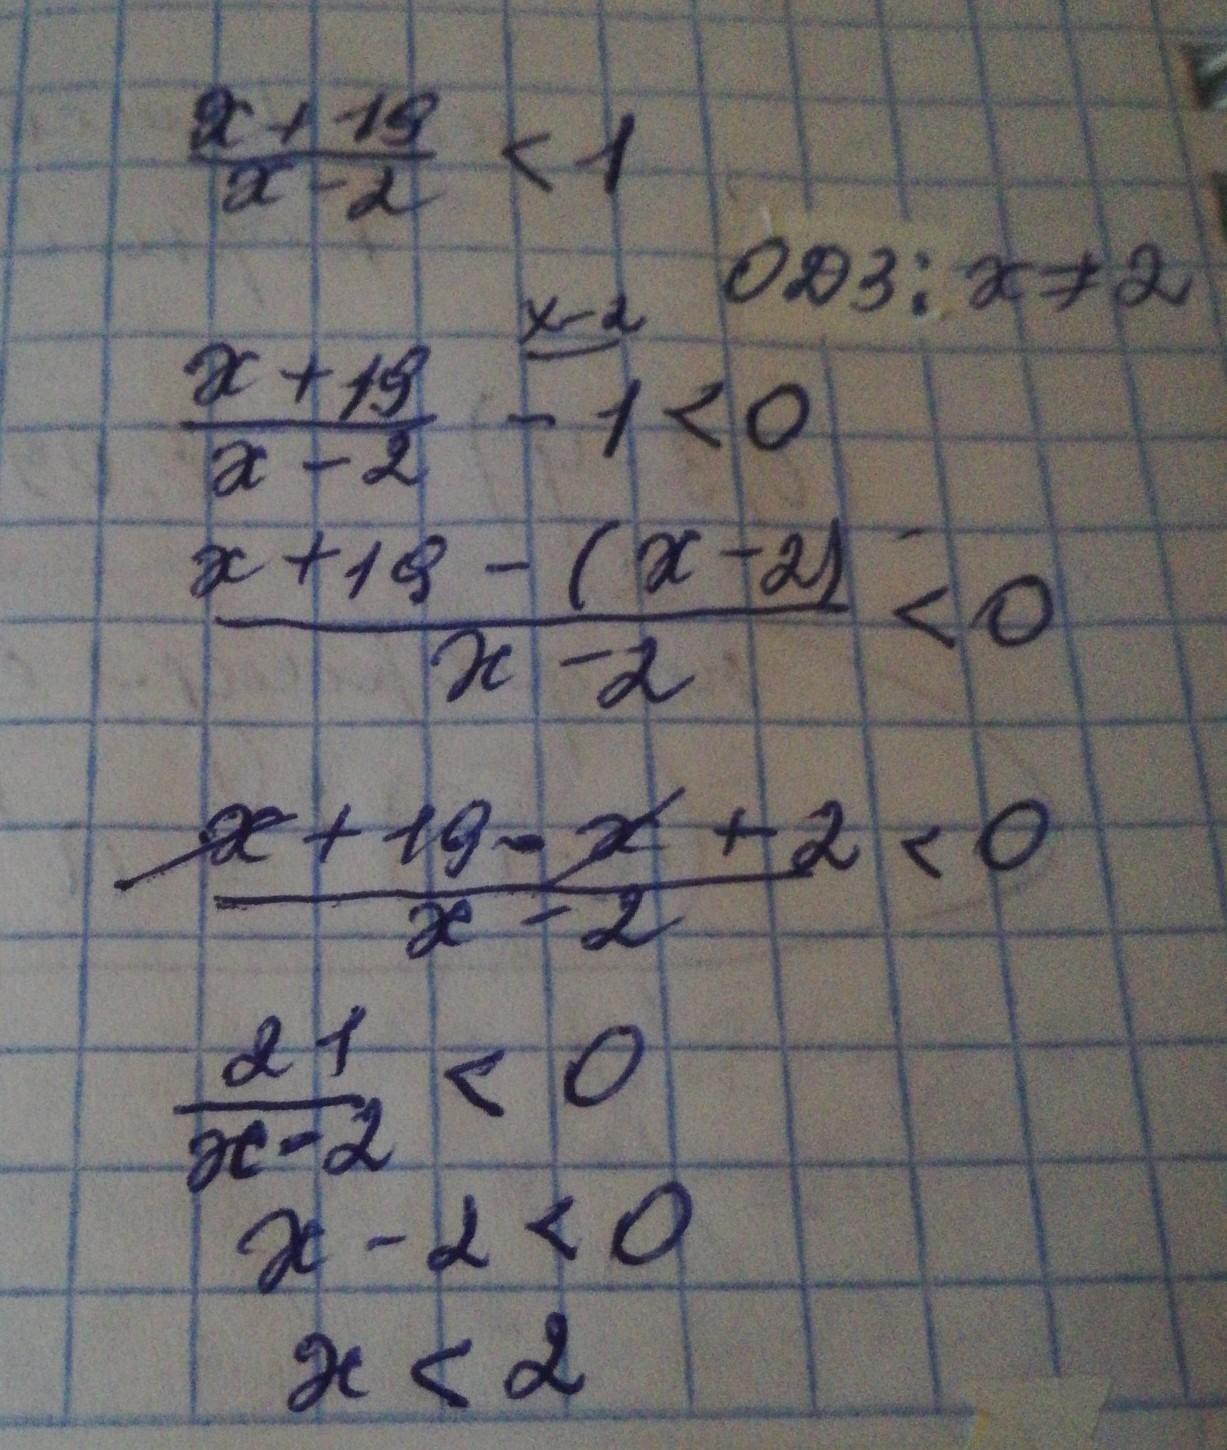 x + 19 / x - 2 < 1
ОДЗ: x ≠ 2
x - 2
x + 19 / x - 2 - 1 < 0
x + 19 - (x - 2) / x - 2 < 0
x + 19 - x + 2 / x - 2 < 0
21 / x - 2 < 0
x - 2 < 0
x < 2